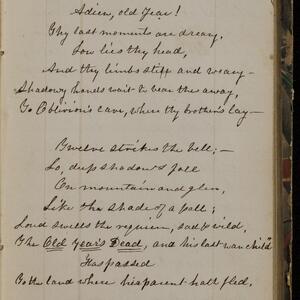 Adieu, old Year!
Thy last moments are dreary,
Low lies thy head,
And thy limbs stiff and weary –
Shadowy hands wait to bear thee away,
To Oblivion's cave, where thy brothers lay –
Twelve strikes the bell; –
Lo, deep shadows fall
On mountain and glen,
Like the shade of a pall;
Loud swells the requiem, sad & wild,
The Old Year's Dead, and his last wan child
Has passed
To the land where his parent hath fled,